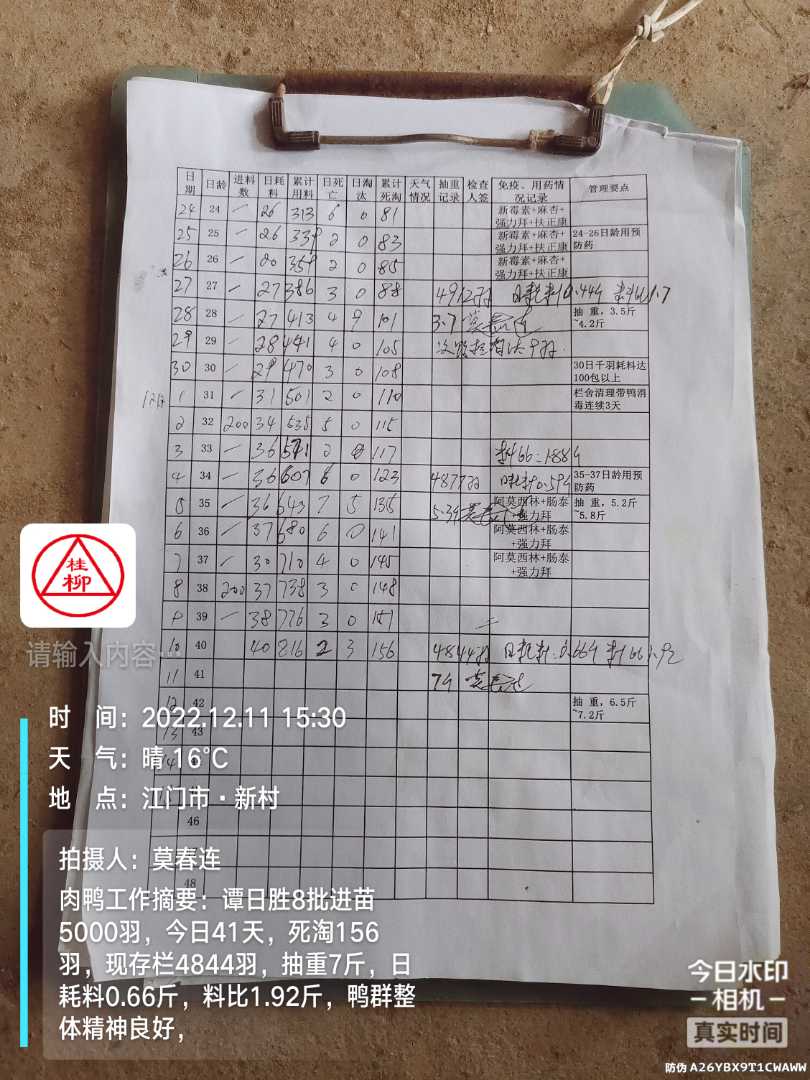 日期 日龄 进料数 日耗料 累计用料 日死亡 日淘汰 累计死淘 天气情况 抽重记录 检查人签 免疫、用药情况记录 管理要点
24 24 26 313 6 0 81 新霉素+麻杏+强力拜+扶正康
25 25 26 339 2 0 83 新霉素+麻杏+强力拜+扶正康 24-26日龄用预防药
26 26 20 359 2 0 85 新霉素+麻杏+强力拜+扶正康
27 27 27 386 3 0 88 4912羽 日耗料0.44斤
28 28 27 413 4 9 101 3.7 抽 重，3.5斤~4.2斤
29 29 28 441 4 0 105
30 30 29 470 3 0 108 30日千羽耗料达100包以上
1 31 31 501 2 0 110 栏舍清理带鸭消毒连续3天
2 32 200 34 535 5 0 115
3 33 36 571 2 117
4 34 36 607 6 0 123 4877羽 日耗料0.59斤 35-37日龄用预防药
5 35 36 643 7 5 135 阿莫西林+肠泰+强力拜 抽 重，5.2斤~5.8斤
6 36 37 680 6 0 141 阿莫西林+肠泰+强力拜
7 37 30 710 4 0 145 阿莫西林+肠泰+强力拜
8 38 200 37 738 3 0 148
9 39 38 776 3 0 151
10 40 40 816 2 3 156 4844羽 日耗料0.66斤 料比1.92
11 41 7斤 莫春连
12 42 抽 重，6.5斤~7.2斤
13 43
46
48
桂柳
请输入内容…
时 间：2022.12.11 15:30
天 气：晴 16℃
地 点：江门市·新村
拍摄人：莫春连
肉鸭工作摘要：谭日胜8批进苗
5000羽，今日41天，死淘156
羽，现存栏4844羽，抽重7斤，日
耗料0.66斤，料比1.92斤，鸭群整
体精神良好，
今日水印
相机
真实时间
防伪 A26YBX9T1CWAWW